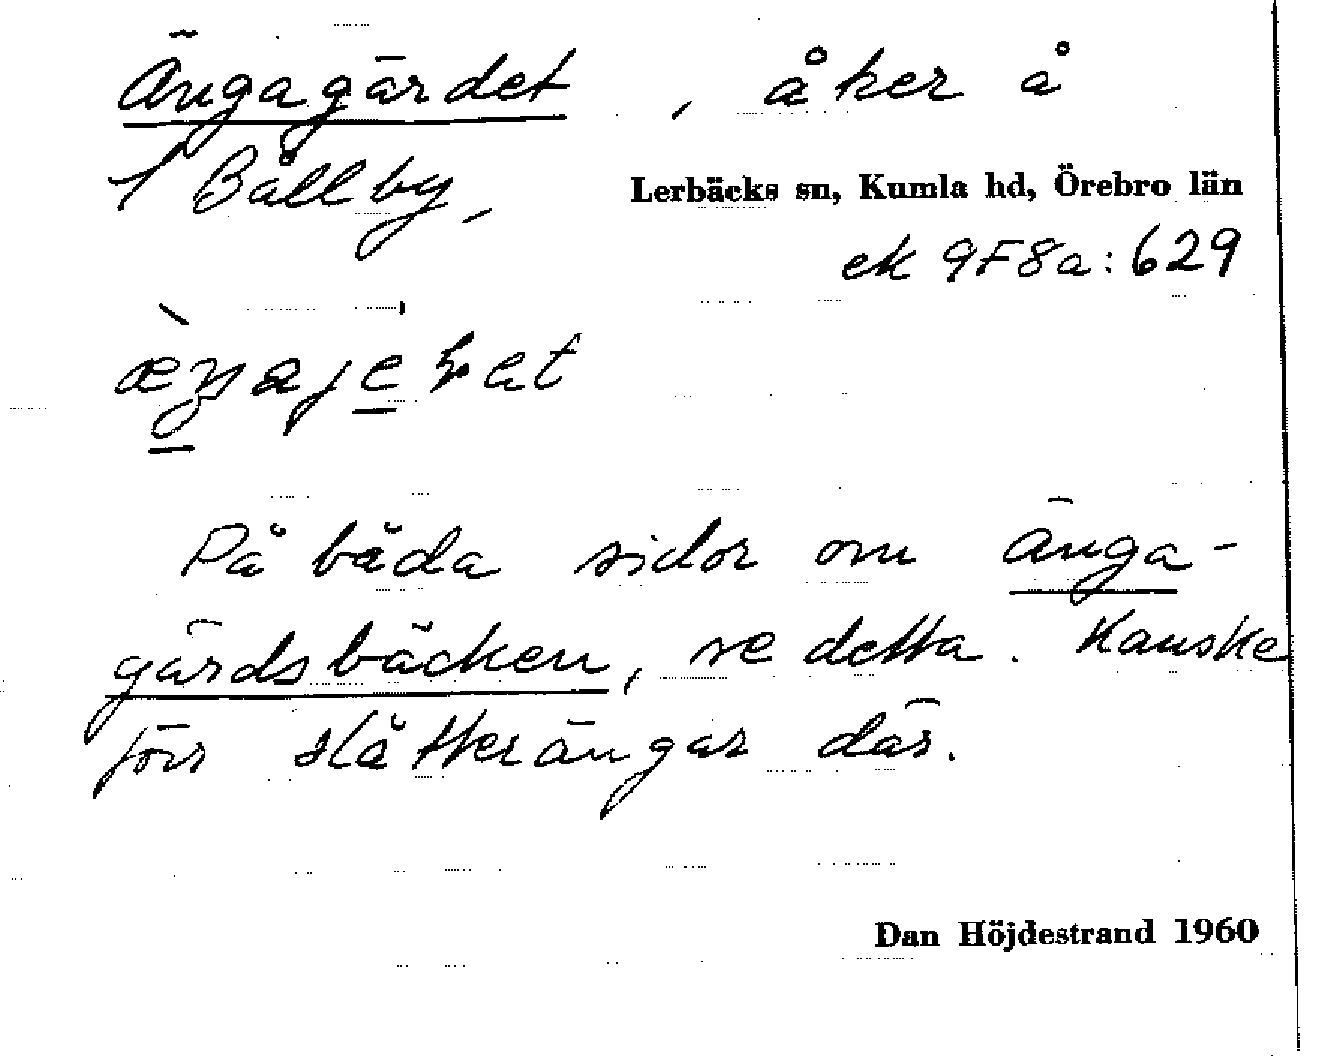 Ängagärdet, åker å
1 Bållby,
Lerbäcks sn, Kumla hd, Örebro län
ek 9F8a:629
På båda sidor om Änga-
gärdsbäcken, se detta. Kanske
förr slåtterängar där.
Dan Höjdestrand 1960